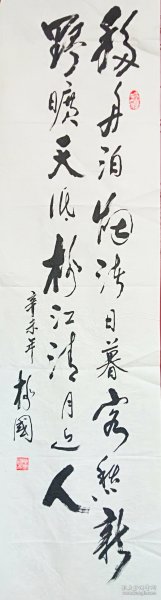 移舟泊烟渚日暮客愁新
野曠天低树江清月近人
辛未年
國